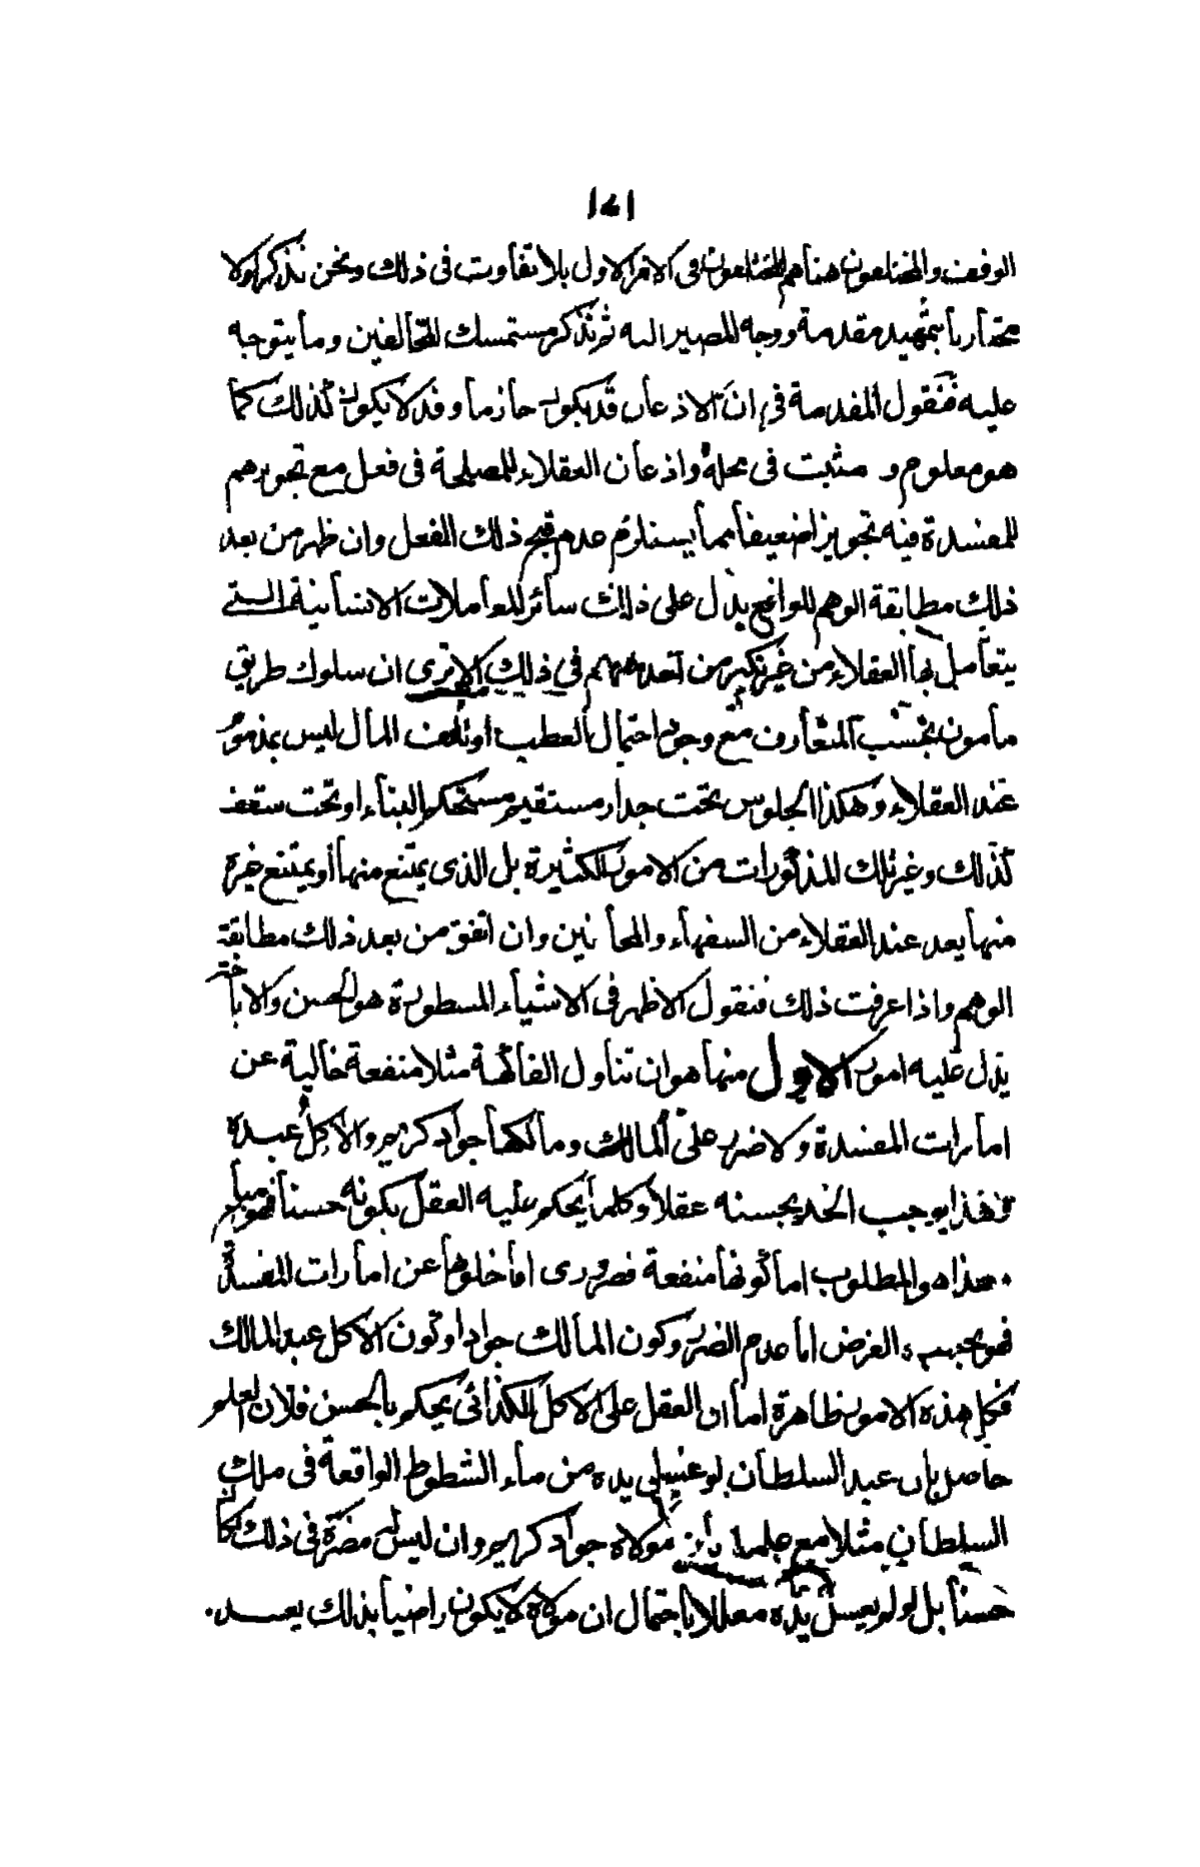 ١٤١
الوقف والمختلفون هنا هم المختلفون فى الامر الاول بلا تفاوت فى ذلك ونحن نذكر اولا
مختارنا بتمهيد مقدمة ووجه المصير اليه ثم نذكر مستمسك المخالفين وما يتوجه
عليه فنقول المقدمة فى ان الاذعان قد يكون جازما وقد لا يكون كذلك كما
هو معلوم و مثبت فى محله واذعان العقلاء للمصلحة فى فعل مع تجويزهم
للمفسدة فيه تجويزا ضعيفا مما يستلزم عدم قبح ذلك الفعل وان ظهر من بعد
ذلك مطابقة الوهم للواقع يدل على ذلك سائر المعاملات الانسانية التى
يتعامل بها العقلاء من غير نكير من احدهم فى ذلك الا ترى ان سلوك طريق
مأمون بحسب المتعارف مع وجود احتمال العطب او تلف المال ليس بمذموم
عند العقلاء وهكذا الجلوس تحت جدار مستقيم مستحكم البناء او تحت سقف
كذلك وغير تلك المذكورات من الامور الكثيرة بل الذى يمتنع منها او يمتنع غيره
منها يعد عند العقلاء من السفهاء والمجانين وان اتفق من بعد ذلك مطابقة
الوهم واذا عرفت ذلك فنقول الاظهر فى الاشياء المسطورة هو الحسن والاباحة
يدل عليه امور الاول منها هو ان تناول الفاكهة مثلا منفعة خالية عن
امارات المفسدة ولا ضرر على المالك ومالكها جواد كريم والاكل عبده
وهذا يوجب الحكم بحسنه عقلا وكلما يحكم عليه العقل بكونه حسنا فهو مباح
هذا هو المطلوب اما كونها منفعة فضرورى اما خلوها عن امارات المفسدة
فهو بحسب الفرض اما عدم الضرر وكون المالك جوادا وكون الاكل عبد المالك
فكل هذه الامور ظاهرة اما ان العقل على الاكل الكذائى يحكم بالحسن فلان العلم
حاصل بان عبد السلطان لو غسل يده من ماء الشطوط الواقعة فى ملك
السلطان مثلا مع علمه بأن مولاه جواد كريم وان ليس له مضرة فى ذلك كان
حسنا بل لو لم يغسل يده معللا باحتمال ان مولاه لا يكون راضيا بذلك يعد